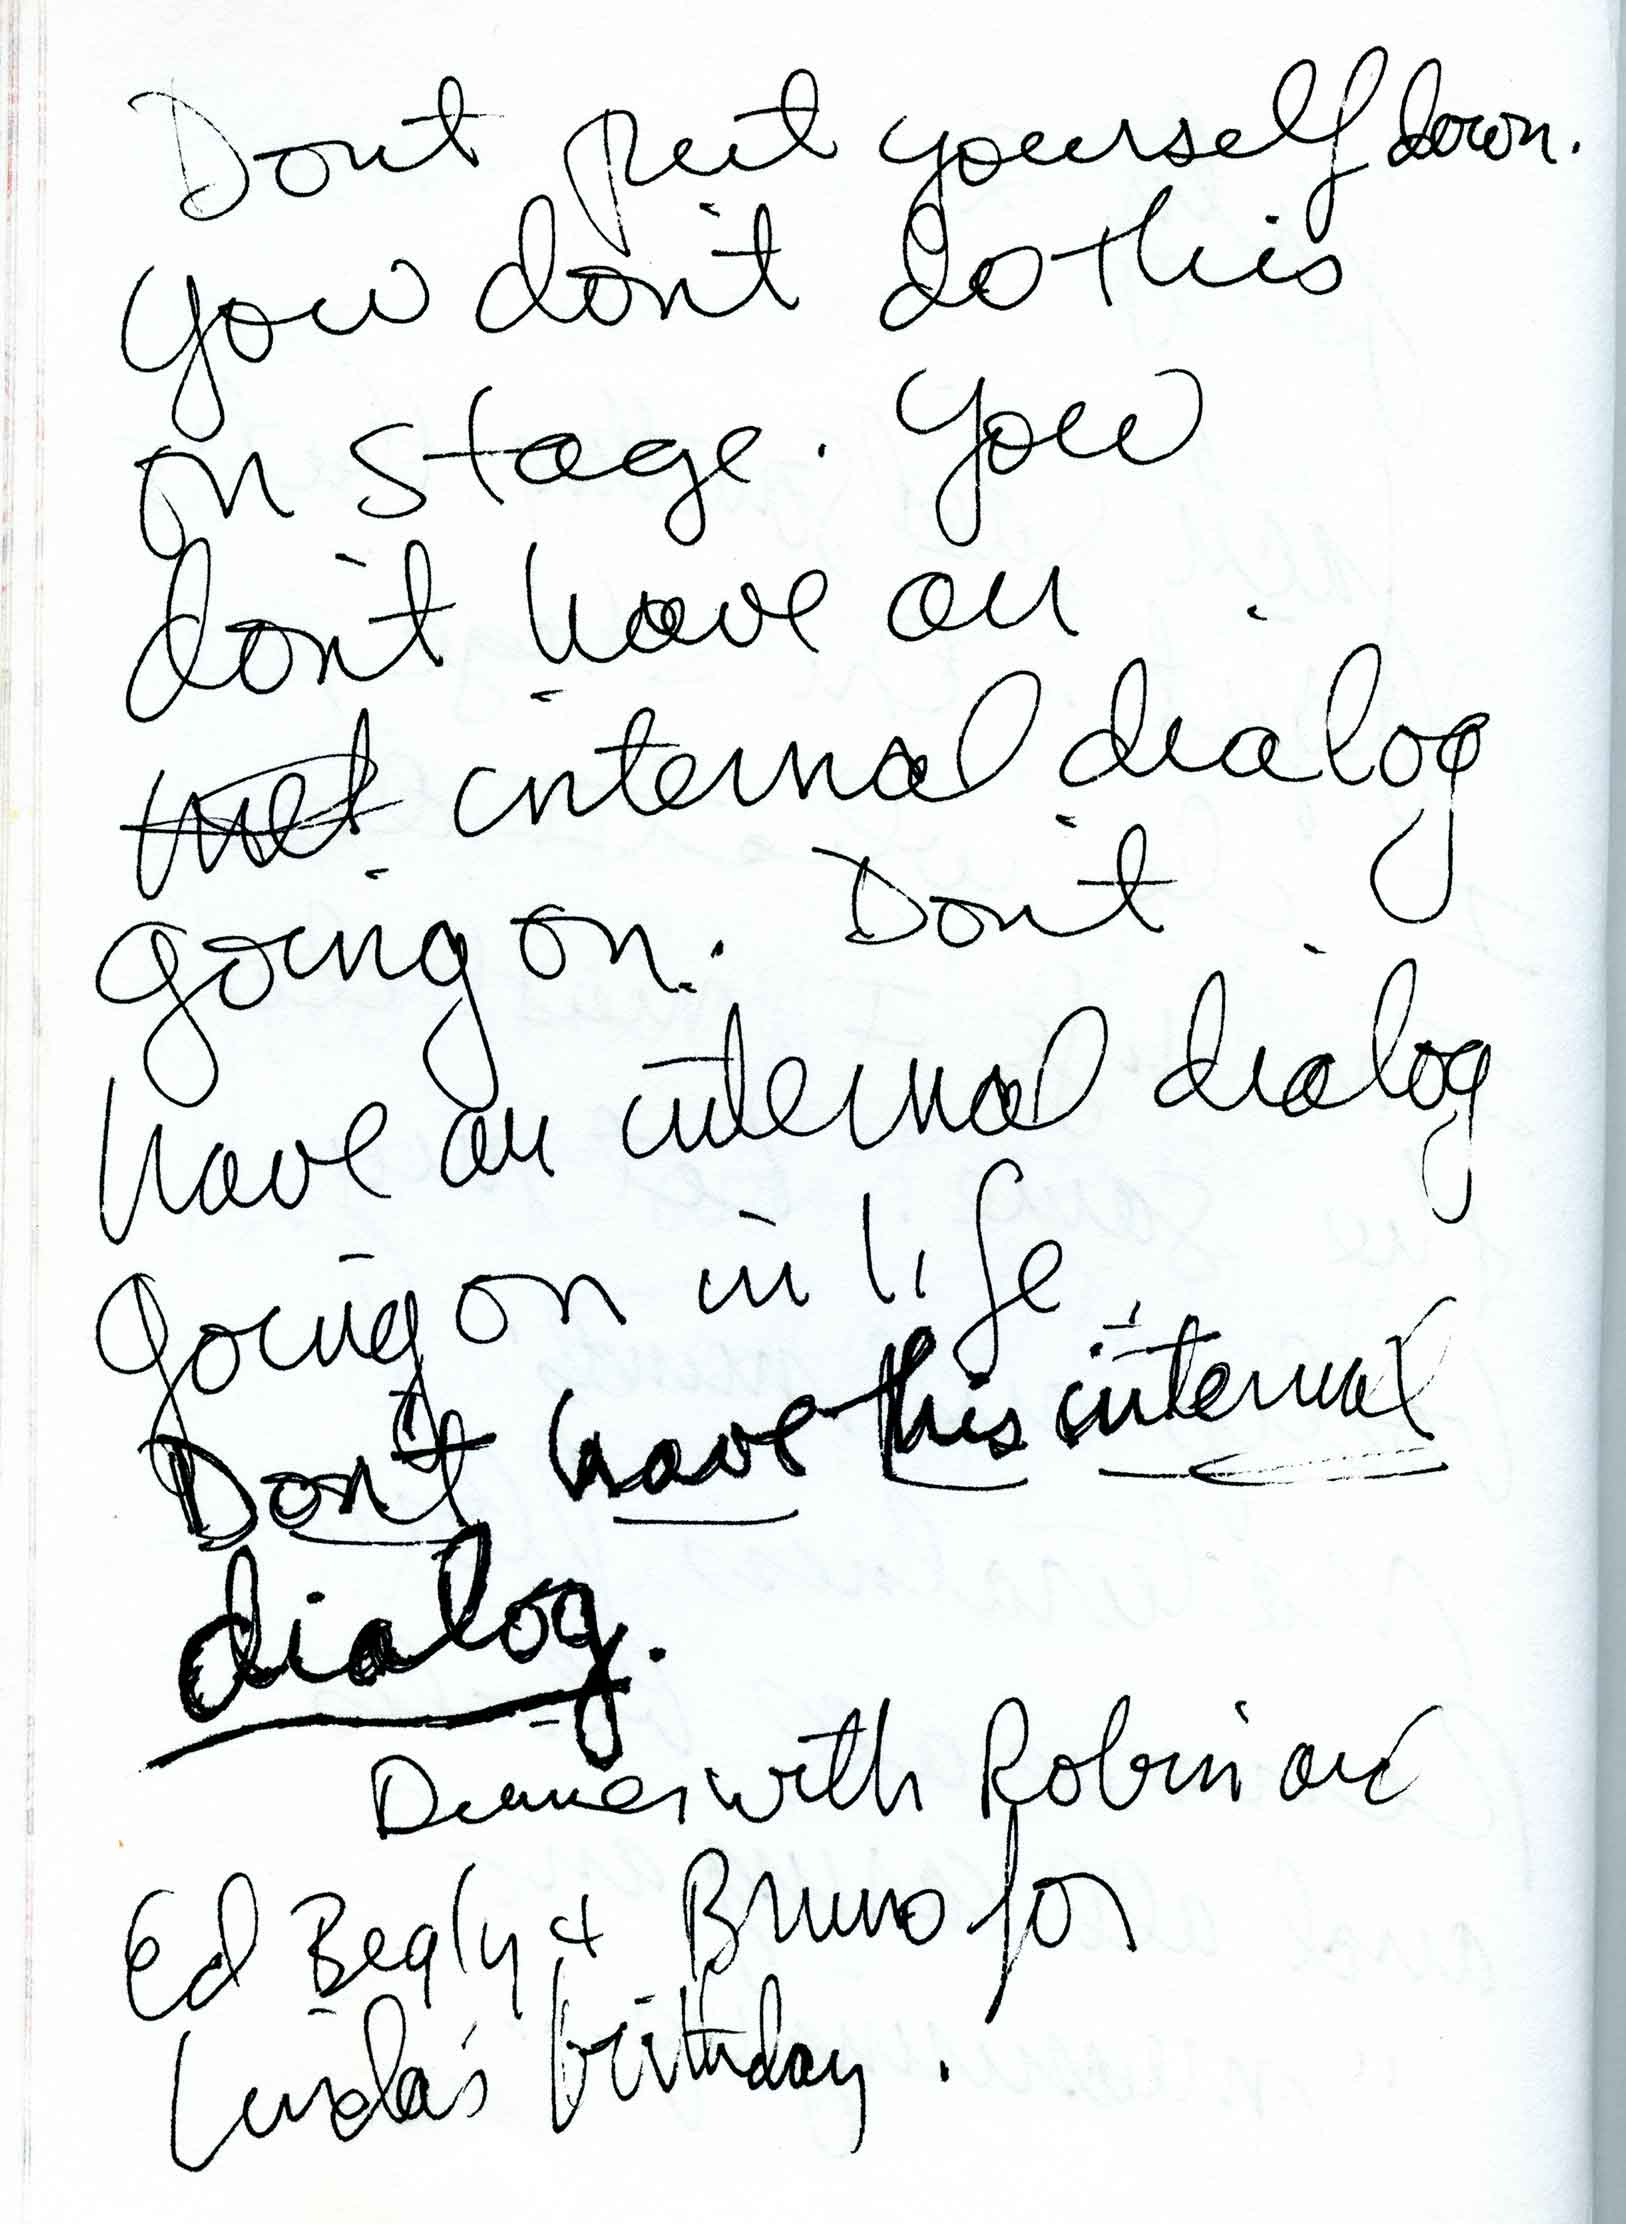 Don't put yourself down.
You don't do this
on stage. You
don't have an
internal dialog
going on. Don't
have an internal dialog
going on in life
Don't have this internal
dialog.
Dinner with Robin and
Ed Begly + Bruno for
Linda's birthday.